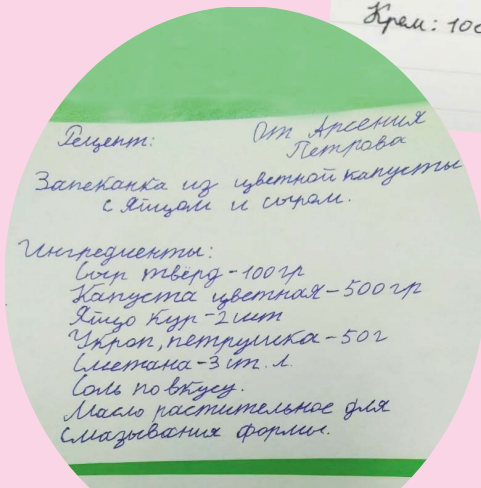 Крем: 10
Рецепт:
От Арсения
Петрова
Запеканка из цветной капусты
с яйцом и сыром.
Ингредиенты:
Сыр твёрд - 100 гр
Капуста цветная - 500 гр
Яйцо кур - 2 шт
Укроп, петрушка - 50 г
Сметана - 3 ст. л.
Соль по вкусу.
Масло растительное для
смазывания формы.